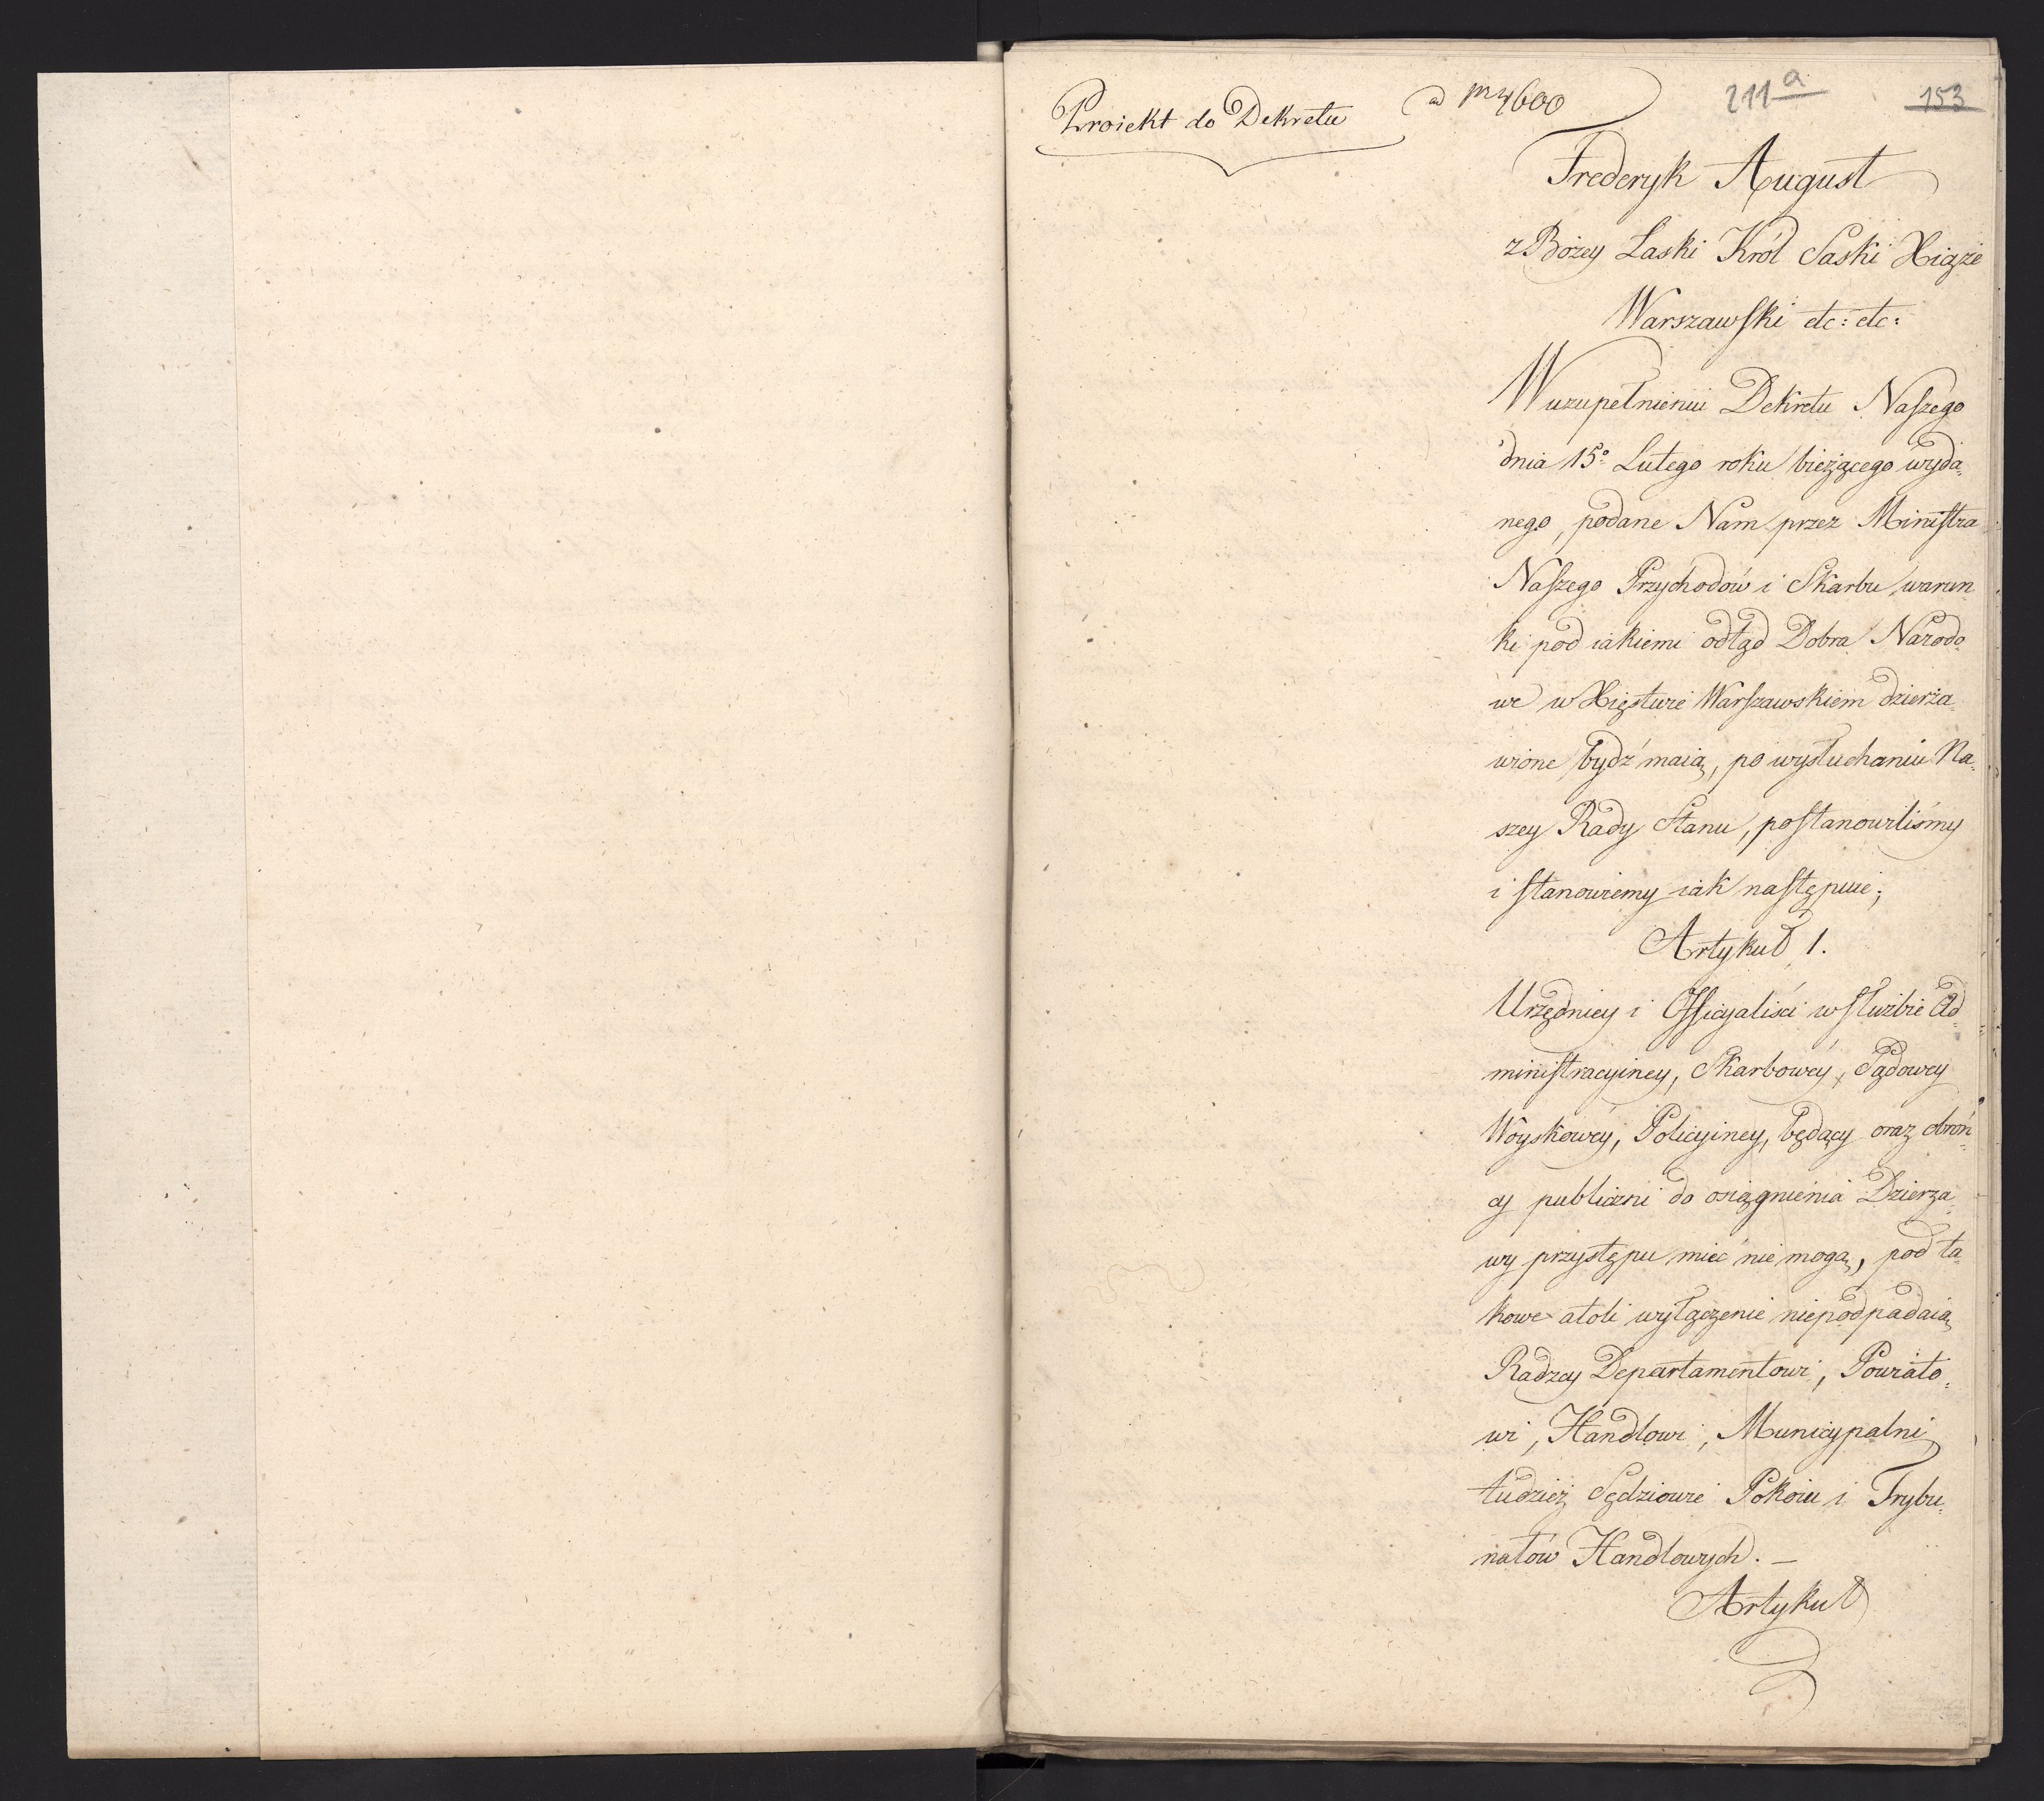 Proiekt do Dekretu
ad 4600
211a
153
Frederyk August
z Bożey Łaski Król Saski Xiąże
Warszawski etc: etc:
W uzupełnieniu Dekretu Naszego
dnia 15º Lutego roku bieżącego wyda„
nego, podane Nam przez Ministra
Naszego Przychodów i Skarbu warun„
ki pod iakiemi odtąd Dobra Narodo„
we w Xięstwie Warszawskiem dzierża„
wione bydź maią, po wysłuchaniu Na„
szey Rady Stanu, postanowiliśmy
i stanowiemy iak następuie;
Artykuł 1.
Urzędnicy i Officyaliści w służbie Ad„
ministracyiney, Skarbowey, Sądowey
Woyskowey, Policyiney, będący oraz obroń„
cy publiczni do osiągnienia Dzierża„
wy przystępu mieć nie mogą, pod ta„
kowe atoli wyłączenie niepodpadaią
Radzcy Departamentowi, Powiato„
wi, Handlowi, Municypalni
tudzież Sędziowie Pokoiu i Trybu„
nałów Handlowych. —
Artykuł